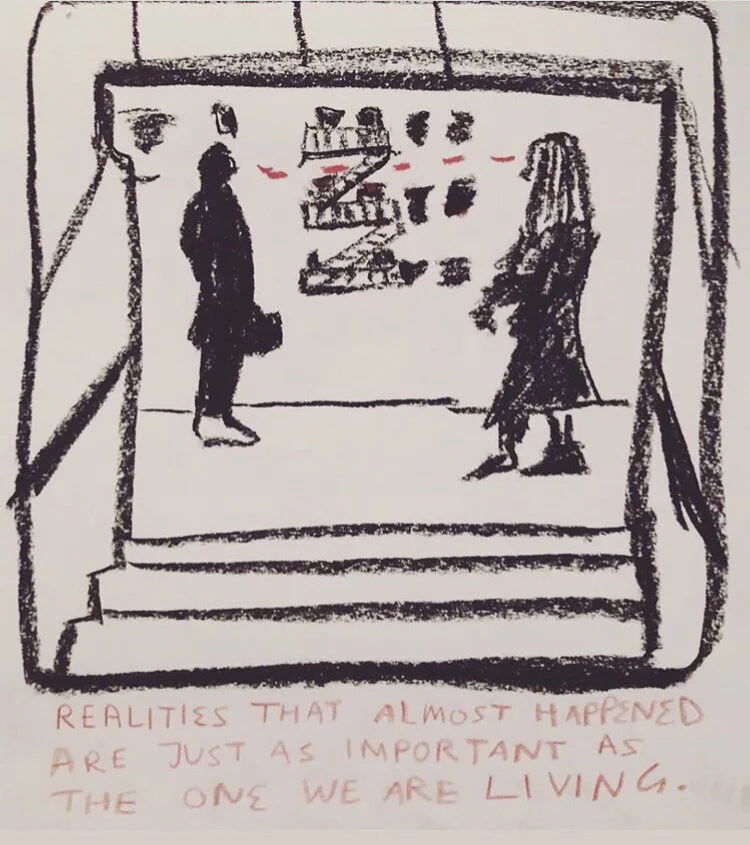 REALITIES THAT ALMOST HAPPENED
ARE JUST AS IMPORTANT AS
THE ONE WE ARE LIVING.